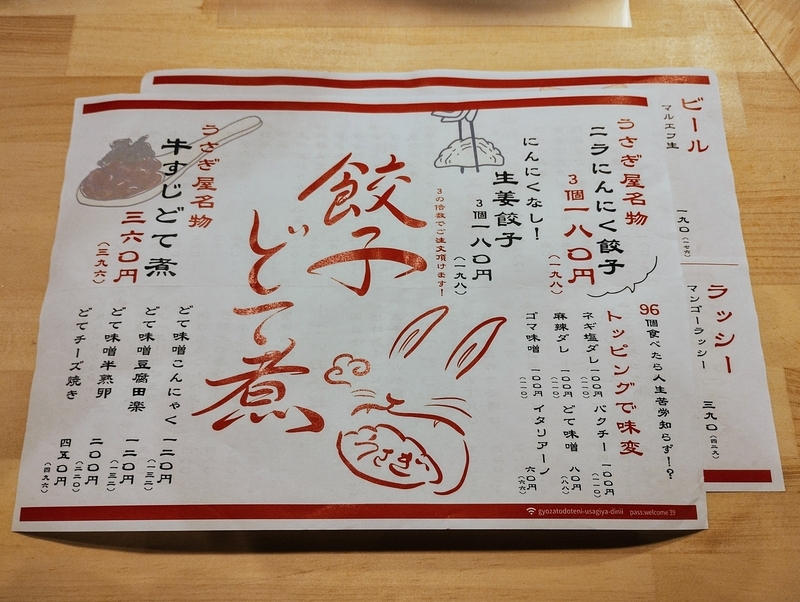 うさぎ屋名物
ニラにんにく餃子
3個一八〇円
(一九八)
にんにくなし!
生姜餃子
3個一八〇円
(一九八)
3の倍数でご注文頂けます!
96個食べたら人生苦労知らず!?
トッピングで味変
ネギ塩ダレ一〇〇円
(一一〇)
パクチー一〇〇円
(一一〇)
麻辣ダレ一〇〇円
(一一〇)
どて味噌八〇円
(八八)
ゴマ味噌一〇〇円
(一一〇)
イタリアーノ六〇円
(六六)
餃子
どて煮
うさぎ
うさぎ屋名物
牛すじどて煮
三六〇円
(三九六)
どて味噌こんにゃく一二〇円
(一三二)
どて味噌豆腐田楽一二〇円
(一三二)
どて味噌半熟卵二〇〇円
(二二〇)
どてチーズ焼き四五〇円
(四九六)
gyozatodoteni-usagiya-dinii pass:welcome39
ビール
マルエフ生
ラッシー
マンゴーラッシー
三九〇(四二九)